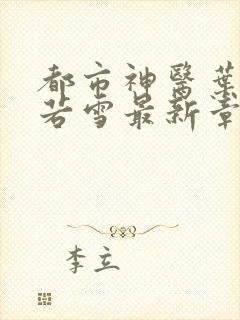 都市神醫葉
若雪最新章
李立